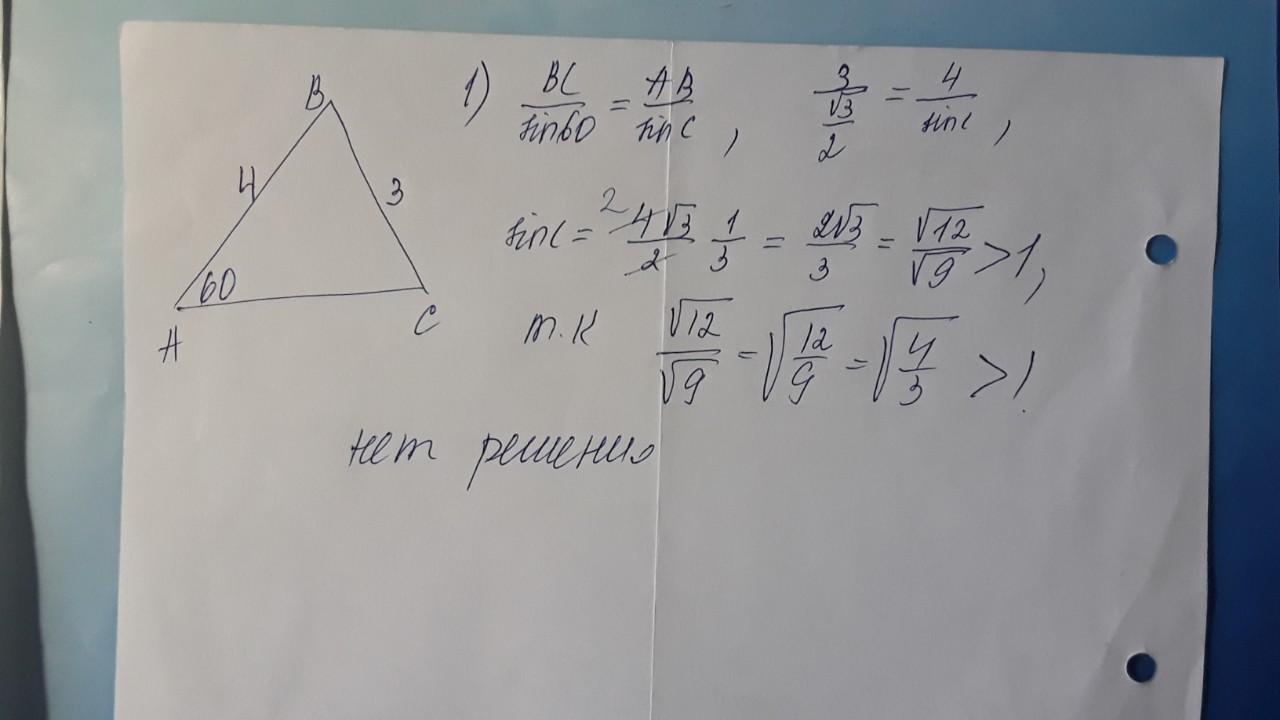 B
4
3
60
A
C
1) BC/sin60 = AB/sinC , 3/(√3/2) = 4/sinC ,
sinC = 2 4√3/2 1/3 = 2√3/3 = √12/√9 >1,
т.к √12/√9 = √(12/9) = √(4/3) >1.
нет решения